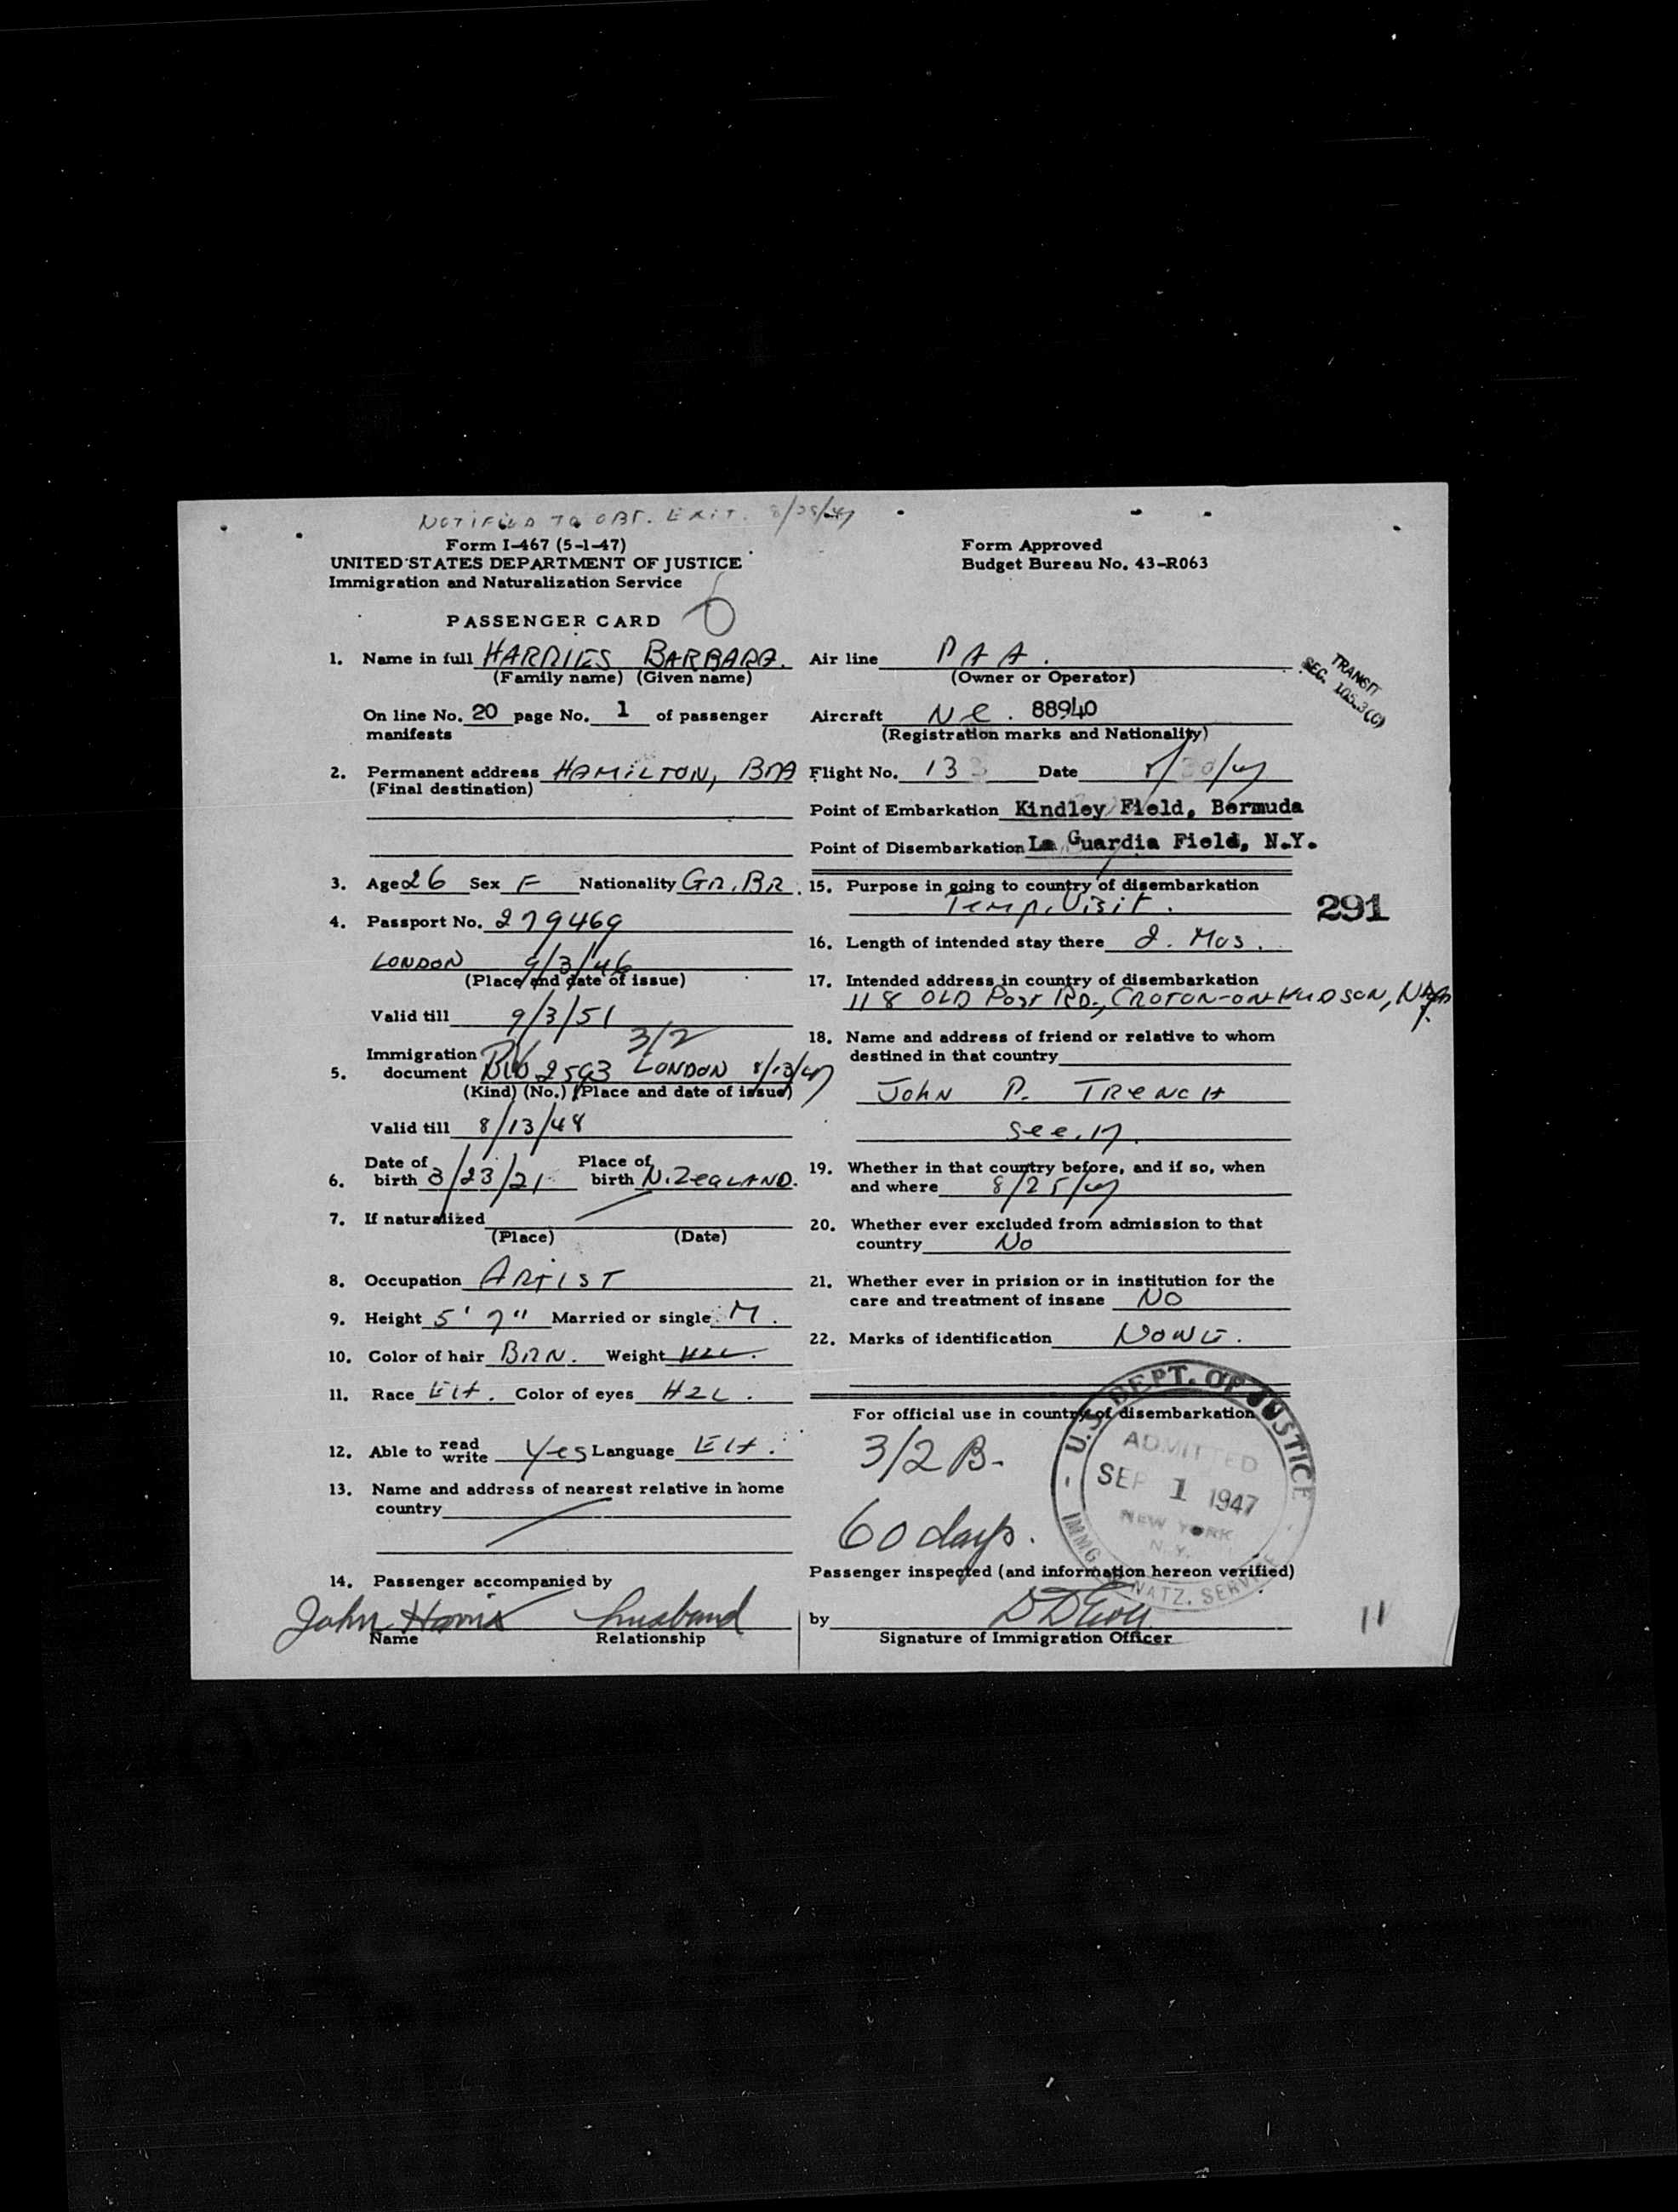 NOTIFIED TO OBT. EXIT. 8/25/47
Form I-467 (5-1-47)
UNITED STATES DEPARTMENT OF JUSTICE
Immigration and Naturalization Service
Form Approved
Budget Bureau No. 43-R063
PASSENGER CARD
1. Name in full HARRIES BARBARA.
(Family name) (Given name)
On line No. 20 page No. 1 of passenger
manifests
2. Permanent address HAMILTON, BDA
(Final destination)
3. Age 26 Sex F Nationality GR. BR.
4. Passport No. 279469
LONDON 9/3/46
(Place and date of issue)
Valid till 9/3/51
3/2
Immigration
5. document 2593 LONDON 8/13/47
(Kind) (No.) (Place and date of issue)
Valid till 8/13/48
6. Date of birth 3/23/21 Place of birth N. ZEALAND.
7. If naturalized
(Place) (Date)
8. Occupation ARTIST
9. Height 5' 7" Married or single M.
10. Color of hair BRN. Weight
11. Race Color of eyes HZL.
12. Able to read write Yes Language
13. Name and address of nearest relative in home
country
14. Passenger accompanied by
John Harris husband
Name Relationship
Air line PAA.
(Owner or Operator)
TRANSIT
Aircraft NC. 88940
(Registration marks and Nationality)
Flight No. 13 Date 8/30/47
Point of Embarkation Kindley Field, Bermuda
Point of Disembarkation La Guardia Field, N.Y.
15. Purpose in going to country of disembarkation
Temp. Visit.
291
16. Length of intended stay there 2. Mos.
17. Intended address in country of disembarkation
118 OLD POST RD., CROTON-ON-HUDSON, N.Y.
18. Name and address of friend or relative to whom
destined in that country
JOHN P. TRENCH
See. 17.
19. Whether in that country before, and if so, when
and where 8/25/47
20. Whether ever excluded from admission to that
country No
21. Whether ever in prision or in institution for the
care and treatment of insane NO
22. Marks of identification NONE.
For official use in country of disembarkation
3/2 B.
60 days.
U.S. DEPT. OF JUSTICE
ADMITTED
SEP 1 1947
NEW YORK
N.Y.
IMMG. NATZ. SERVICE
Passenger inspected (and information hereon verified)
by
Signature of Immigration Officer
11